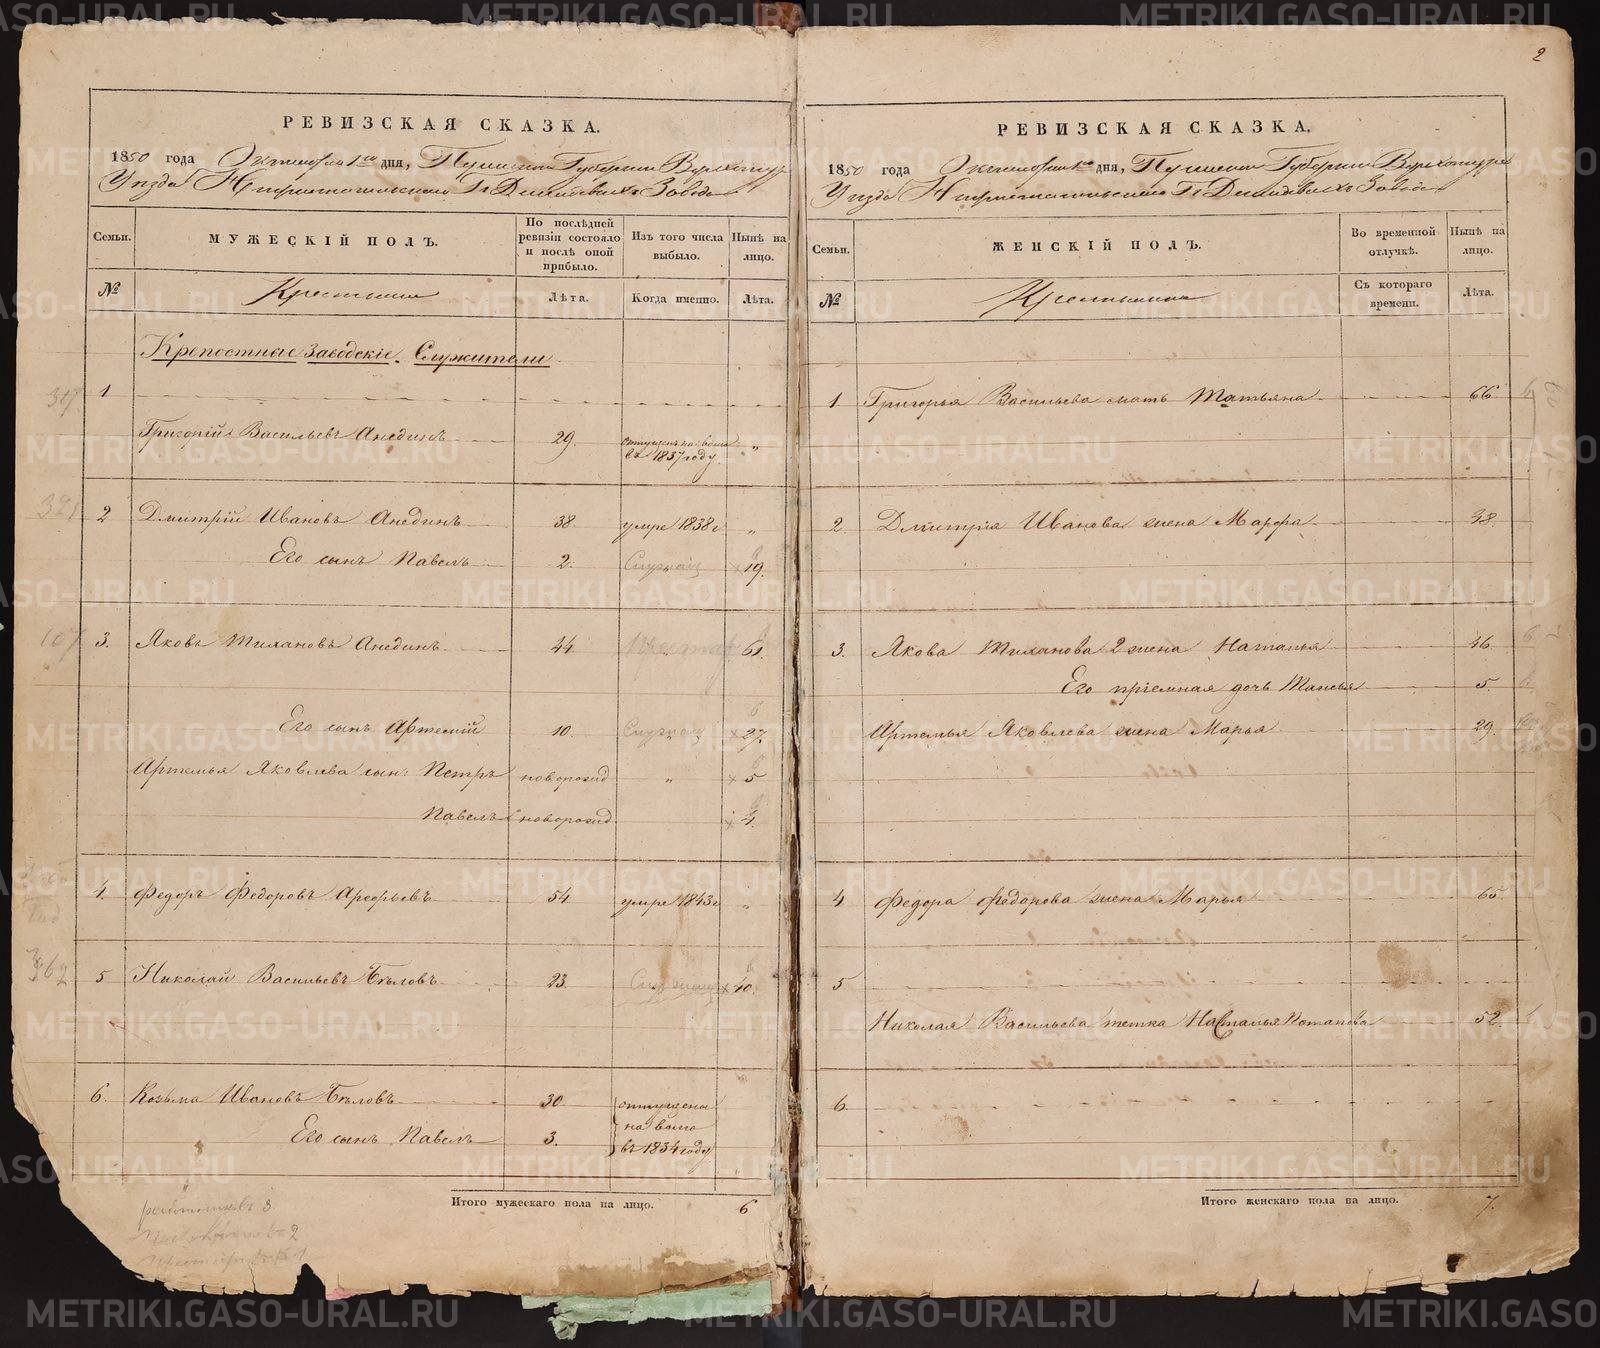 2
РЕВИЗСКАЯ СКАЗКА.
1850 года Октября 1го дня, Пермской Губернии Верхотур
Уезда Нижнетагильскаго Гг Демидовыхъ Завода
Семьи. МУЖЕСКІЙ ПОЛЪ. По послѣдней ревизіи состояло и послѣ оной прибыло. Изъ того числа выбыло. Нынѣ на лицо.
№ Крестьяне Лѣта. Когда именно. Лѣта.
Крепостные Заводскіе Служители
1
Григорій Васильевъ Анединъ 29. отпущенъ на волю въ 1837 году. "
2 Дмитрій Ивановъ Анединъ 38. умре 1838 г "
Его сынъ Павелъ 2. 19.
3. Яковъ Тихановъ Анединъ 44. 61.
Его сынъ Артемій 10. " 27.
Артемья Яковлева сын: Петръ новорожд " 5
Павелъ новорожд 4.
4. Федоръ Федоровъ Арефьевъ 54 умре 1843 г "
5 Николай Васильевъ Бѣловъ 23. 40.
6. Козьма Ивановъ Бѣловъ 30. отпущены
Его сынъ Павелъ 3. на волю въ 1834 году
Итого мужескаго пола на лицо. 6
РЕВИЗСКАЯ СКАЗКА.
1850 года Октября 1го дня, Пермской Губернии Верхотурск
Уезда Нижнетагильскаго Гг Демидовыхъ Завода
Семьи. ЖЕНСКІЙ ПОЛЪ. Во временной отлучкѣ. Нынѣ на лицо.
№ Крестьянки Съ котораго времени. Лѣта.
1. Григорья Васильева мать Татьяна 66
2. Дмитрія Иванова жена Марфа 38.
3. Якова Тиханова 2 жена Наталья 46.
Его пріемная дочь Таисья 5.
Артемья Яковлева жена Марья 29.
4 Федора Федорова жена Марья 65
5
Николая Васильева тетка Наталья Потапова 52.
6.
Итого женскаго пола на лицо. 7.
METRIKI.GASO-URAL.RU